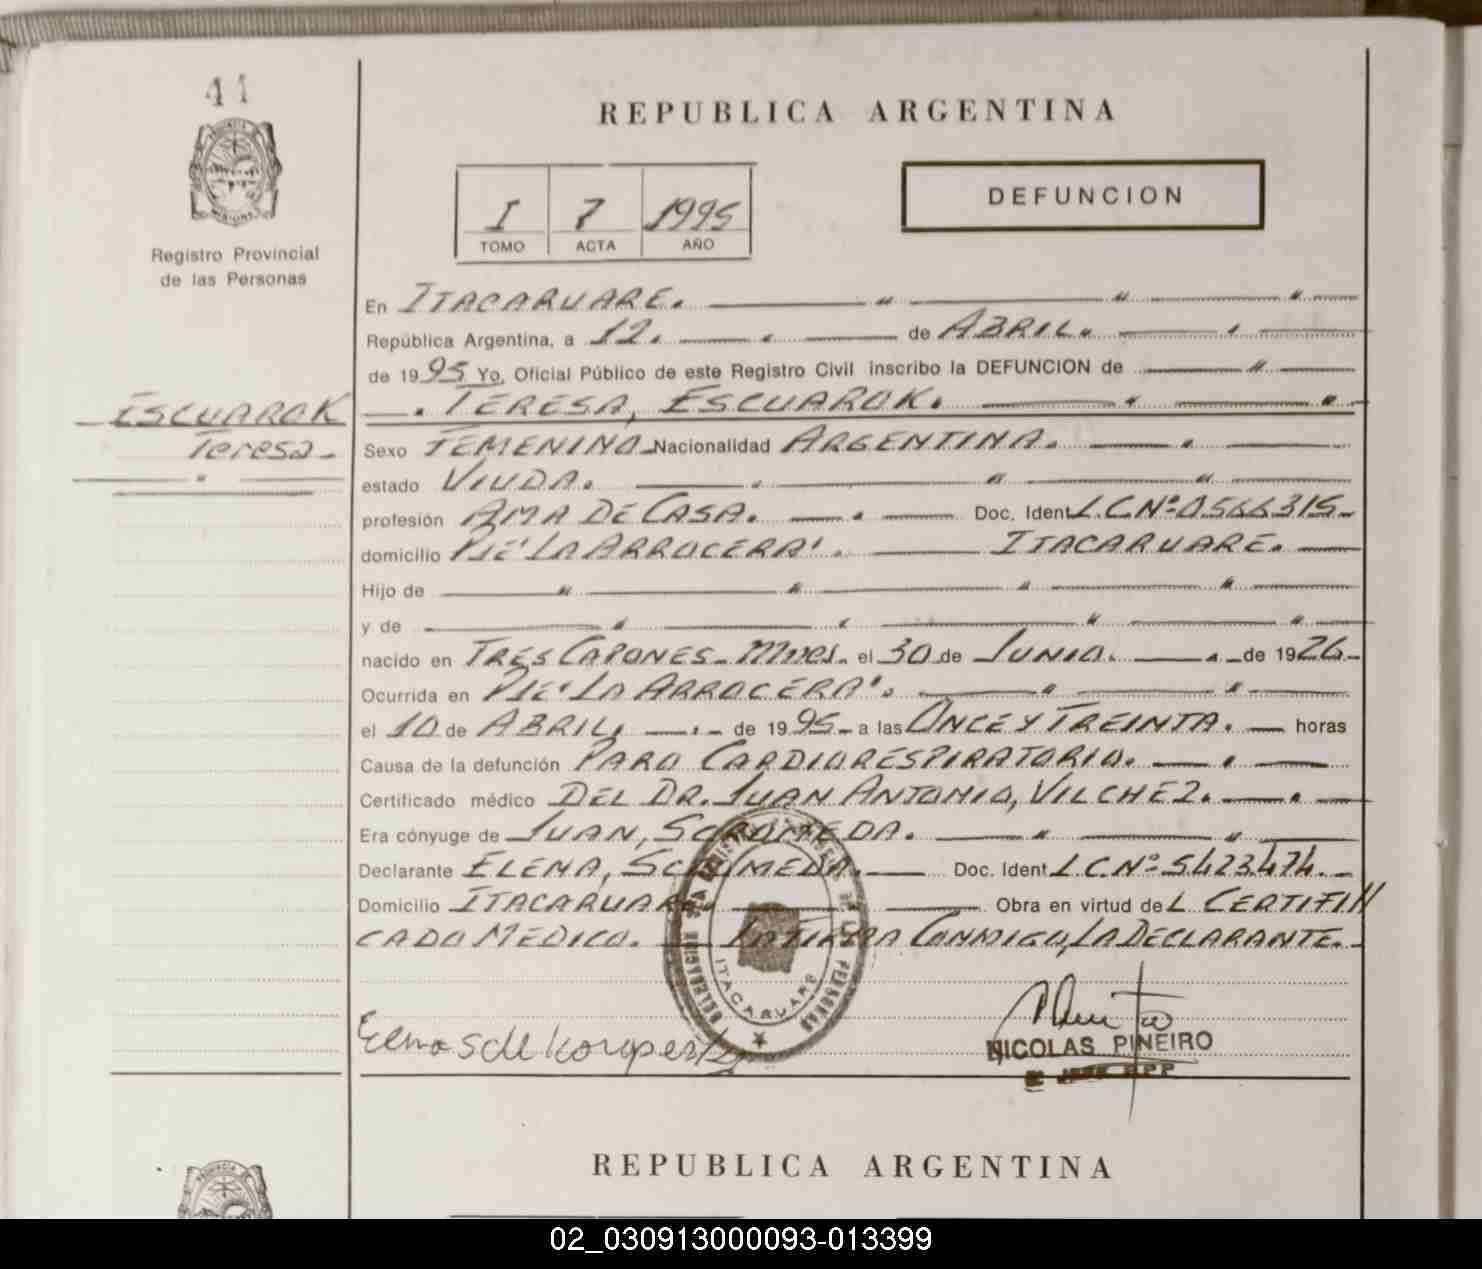 41
Registro Provincial
de las Personas
REPUBLICA ARGENTINA
I 7 1995
TOMO ACTA AÑO
DEFUNCION
En ITACARUARE.
República Argentina, a 12. de ABRIL.
de 1995 Yo, Oficial Público de este Registro Civil inscribo la DEFUNCION de
ESCUAROK
. TERESA, ESCUAROK.
Teresa
Sexo FEMENINO Nacionalidad ARGENTINA.
estado VIUDA.
profesión AMA DE CASA. Doc. Ident L.C.Nº 0566315
domicilio PJE "LA ARROCERA". ITACARUARE.
Hijo de
y de
nacido en TRES CAPONES - Mnes. el 30 de JUNIO. de 1926
Ocurrida en PJE "LA ARROCERA".
el 10 de ABRIL. de 1995 a las ONCE Y TREINTA. horas
Causa de la defunción PARO CARDIORESPIRATORIO.
Certificado médico DEL DR. JUAN ANTONIO, VILCHEZ.
Era cónyuge de JUAN, SCROMEDA.
Declarante ELENA, SCROMEDA. Doc. Ident L.C.Nº 5423474.
Domicilio ITACARUARE. Obra en virtud de L CERTIFI
CADO MEDICO. LA FIRMA CONMIGO, LA DECLARANTE.
DELEGACION
DE LAS PERSONAS
ITACARUARE
Elena S de
NICOLAS PINEIRO
REPUBLICA ARGENTINA
02_030913000093-013399